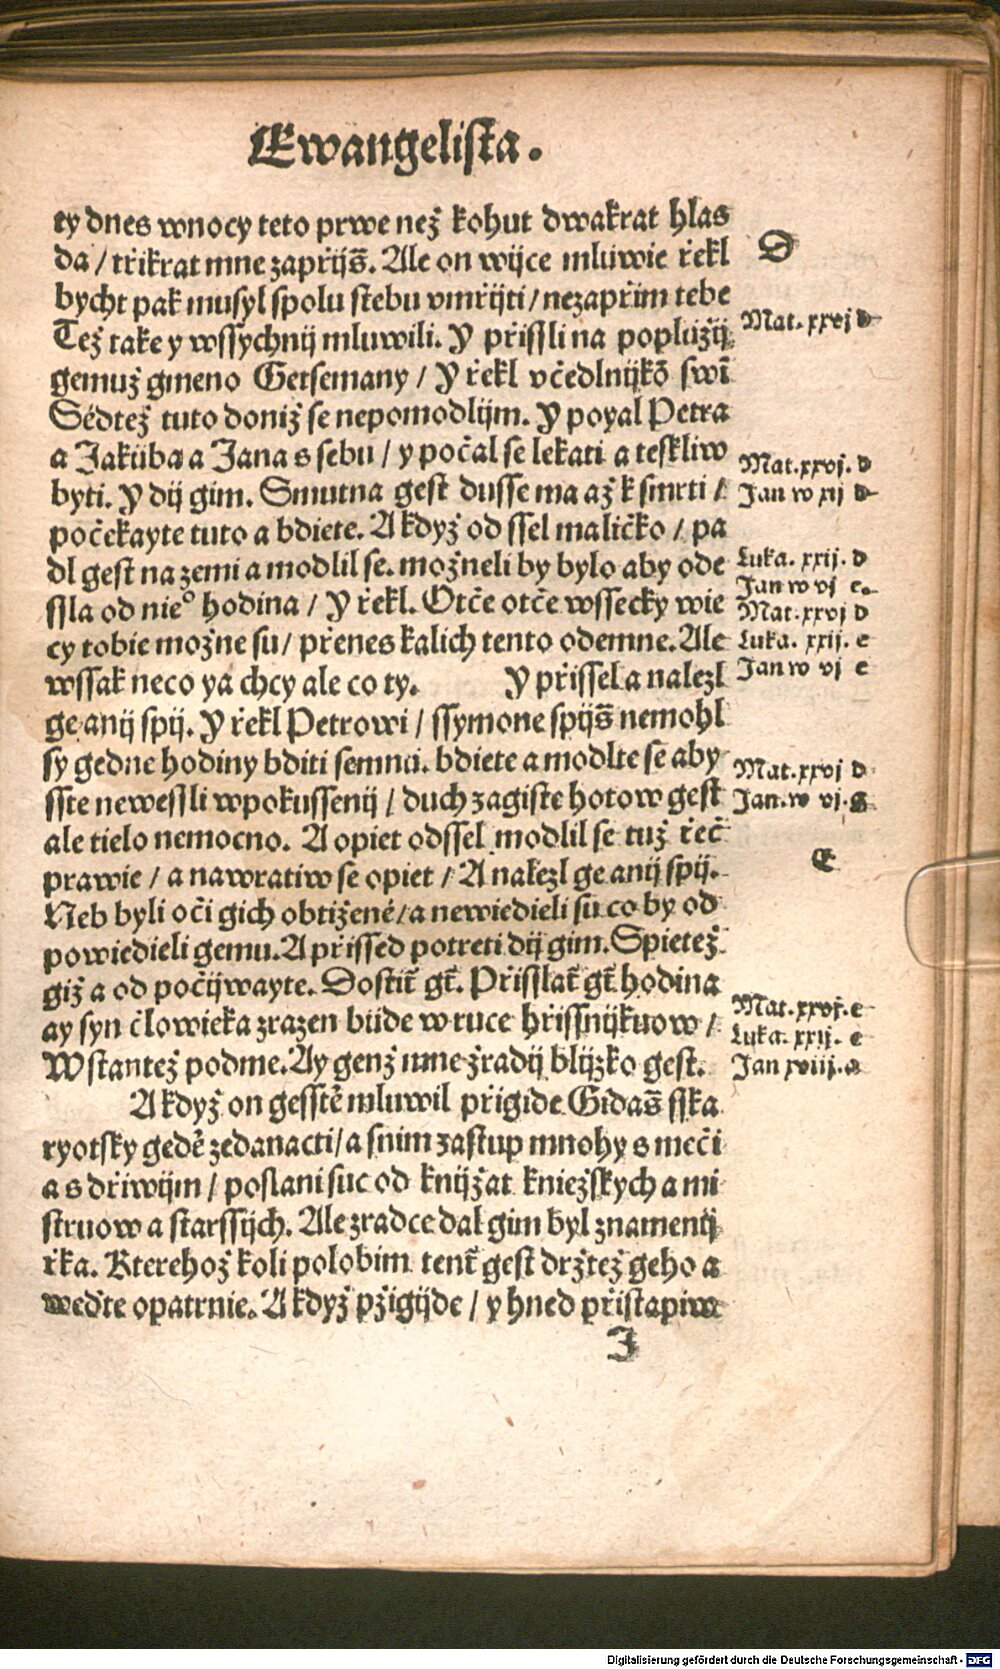 Ewangelista.
ty dnes wnocy teto prwe než kohut dwakrat hlas
da / třikrat mne zapřijš. Ale on wijce mluwie řekl
bycht pak musyl spolu stebu vmřijti / nezapřim tebe
Též take y wssychnij mluwili. Y přissli na poplužij
gemuž gmeno Getsemany / Y řekl včedlnijkō swī
Sédtež tuto doniž se nepomodlijm. Y poyal Petra
a Jakúba a Jana s sebu / y počal se lekati a teskliw
byti. Y dij gim. Smutna gest dusse ma až k smrti /
počekayte tuto a bdiete. A když od ssel maličko / pa
dl gest na zemi a modlil se. možneli by bylo aby ode
ssla od nieº hodina / Y řekl. Otče otče wssecky wie
cy tobie možne su / přenes kalich tento odemne. Ale
wssak neco ya chcy ale co ty. Y přissel a nalezl
ge anij spij. Y řekl Petrowi / ssymone spijš nemohl
sy gedne hodiny bditi semnu. bdiete a modlte se aby
sste newessli wpokussenij / duch zagiste hotow gest
ale tielo nemocno. A opiet odssel modlil se tuž řeč
prawie / a nawratiw se opiet / A nalezl ge anij spij.
Neb byli oči gich obtižené / a newiedieli su co by od
powiedieli gemu. A přissed potreti dij gim. Spietež
giž a od počijwayte. Dostiť gť. Přisslať gť hodina
ay syn člowieka zrazen búde w ruce hřissnijkuow /
Wstantež podme. Ay genž mne zradij blijzko gest.
A když on gesstě mluwil přigide Gidaš sska
ryotsky gedē zedanacti / a snim zastup mnohy s meči
a s dřiwijm / poslani suc od knijžat kniežskych a mi
struow a starssijch. Ale zradce dal gim byl znamenij
řka. Kterehož koli polobim tenť gest držtež geho a
weďte opatrnie. A když pžigijde / y hned přistapiw
I
D
Mat. xxvj d
Mat. xxvj. d
Jan w xij d
Luka. xxij. d
Jan w vj c.
Mat. xxvj d
Luka. xxij. e
Jan w vj e
Mat. xxvj d
Jan. w vj. g
E
Mat. xxvj. e
Luka. xxij. e
Jan xviij. a
Digitalisierung gefördert durch die Deutsche Forschungsgemeinschaft - DFG